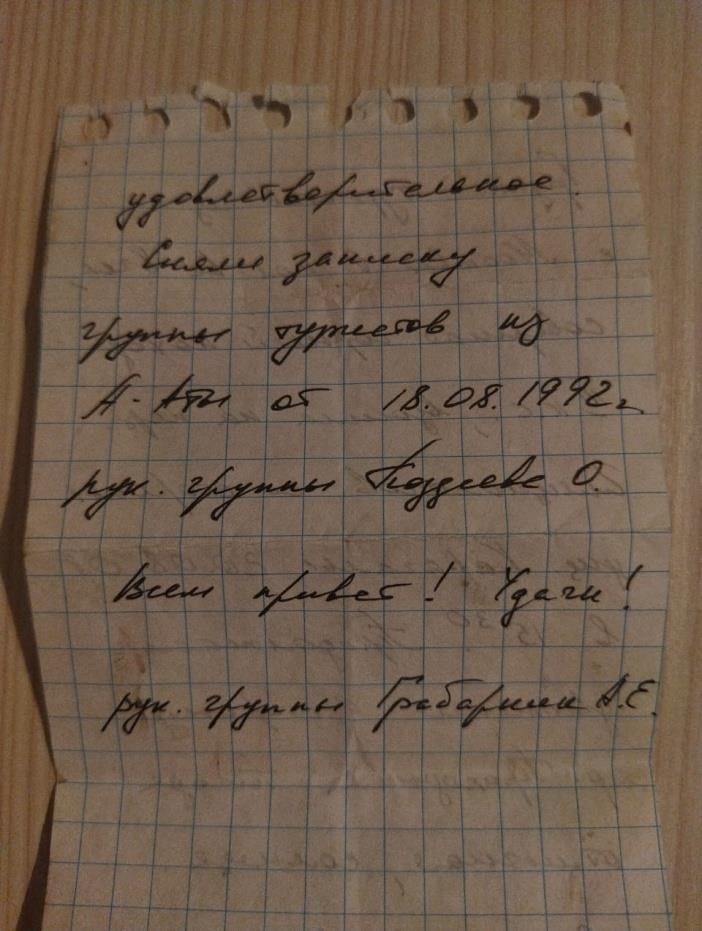 удовлетворительное.
Сняли записку
группы туристов из
А-Аты от 18.08.1992г
рук. группы Поздеева О.
Всем привет! Удачи!
рук. группы А.Е.